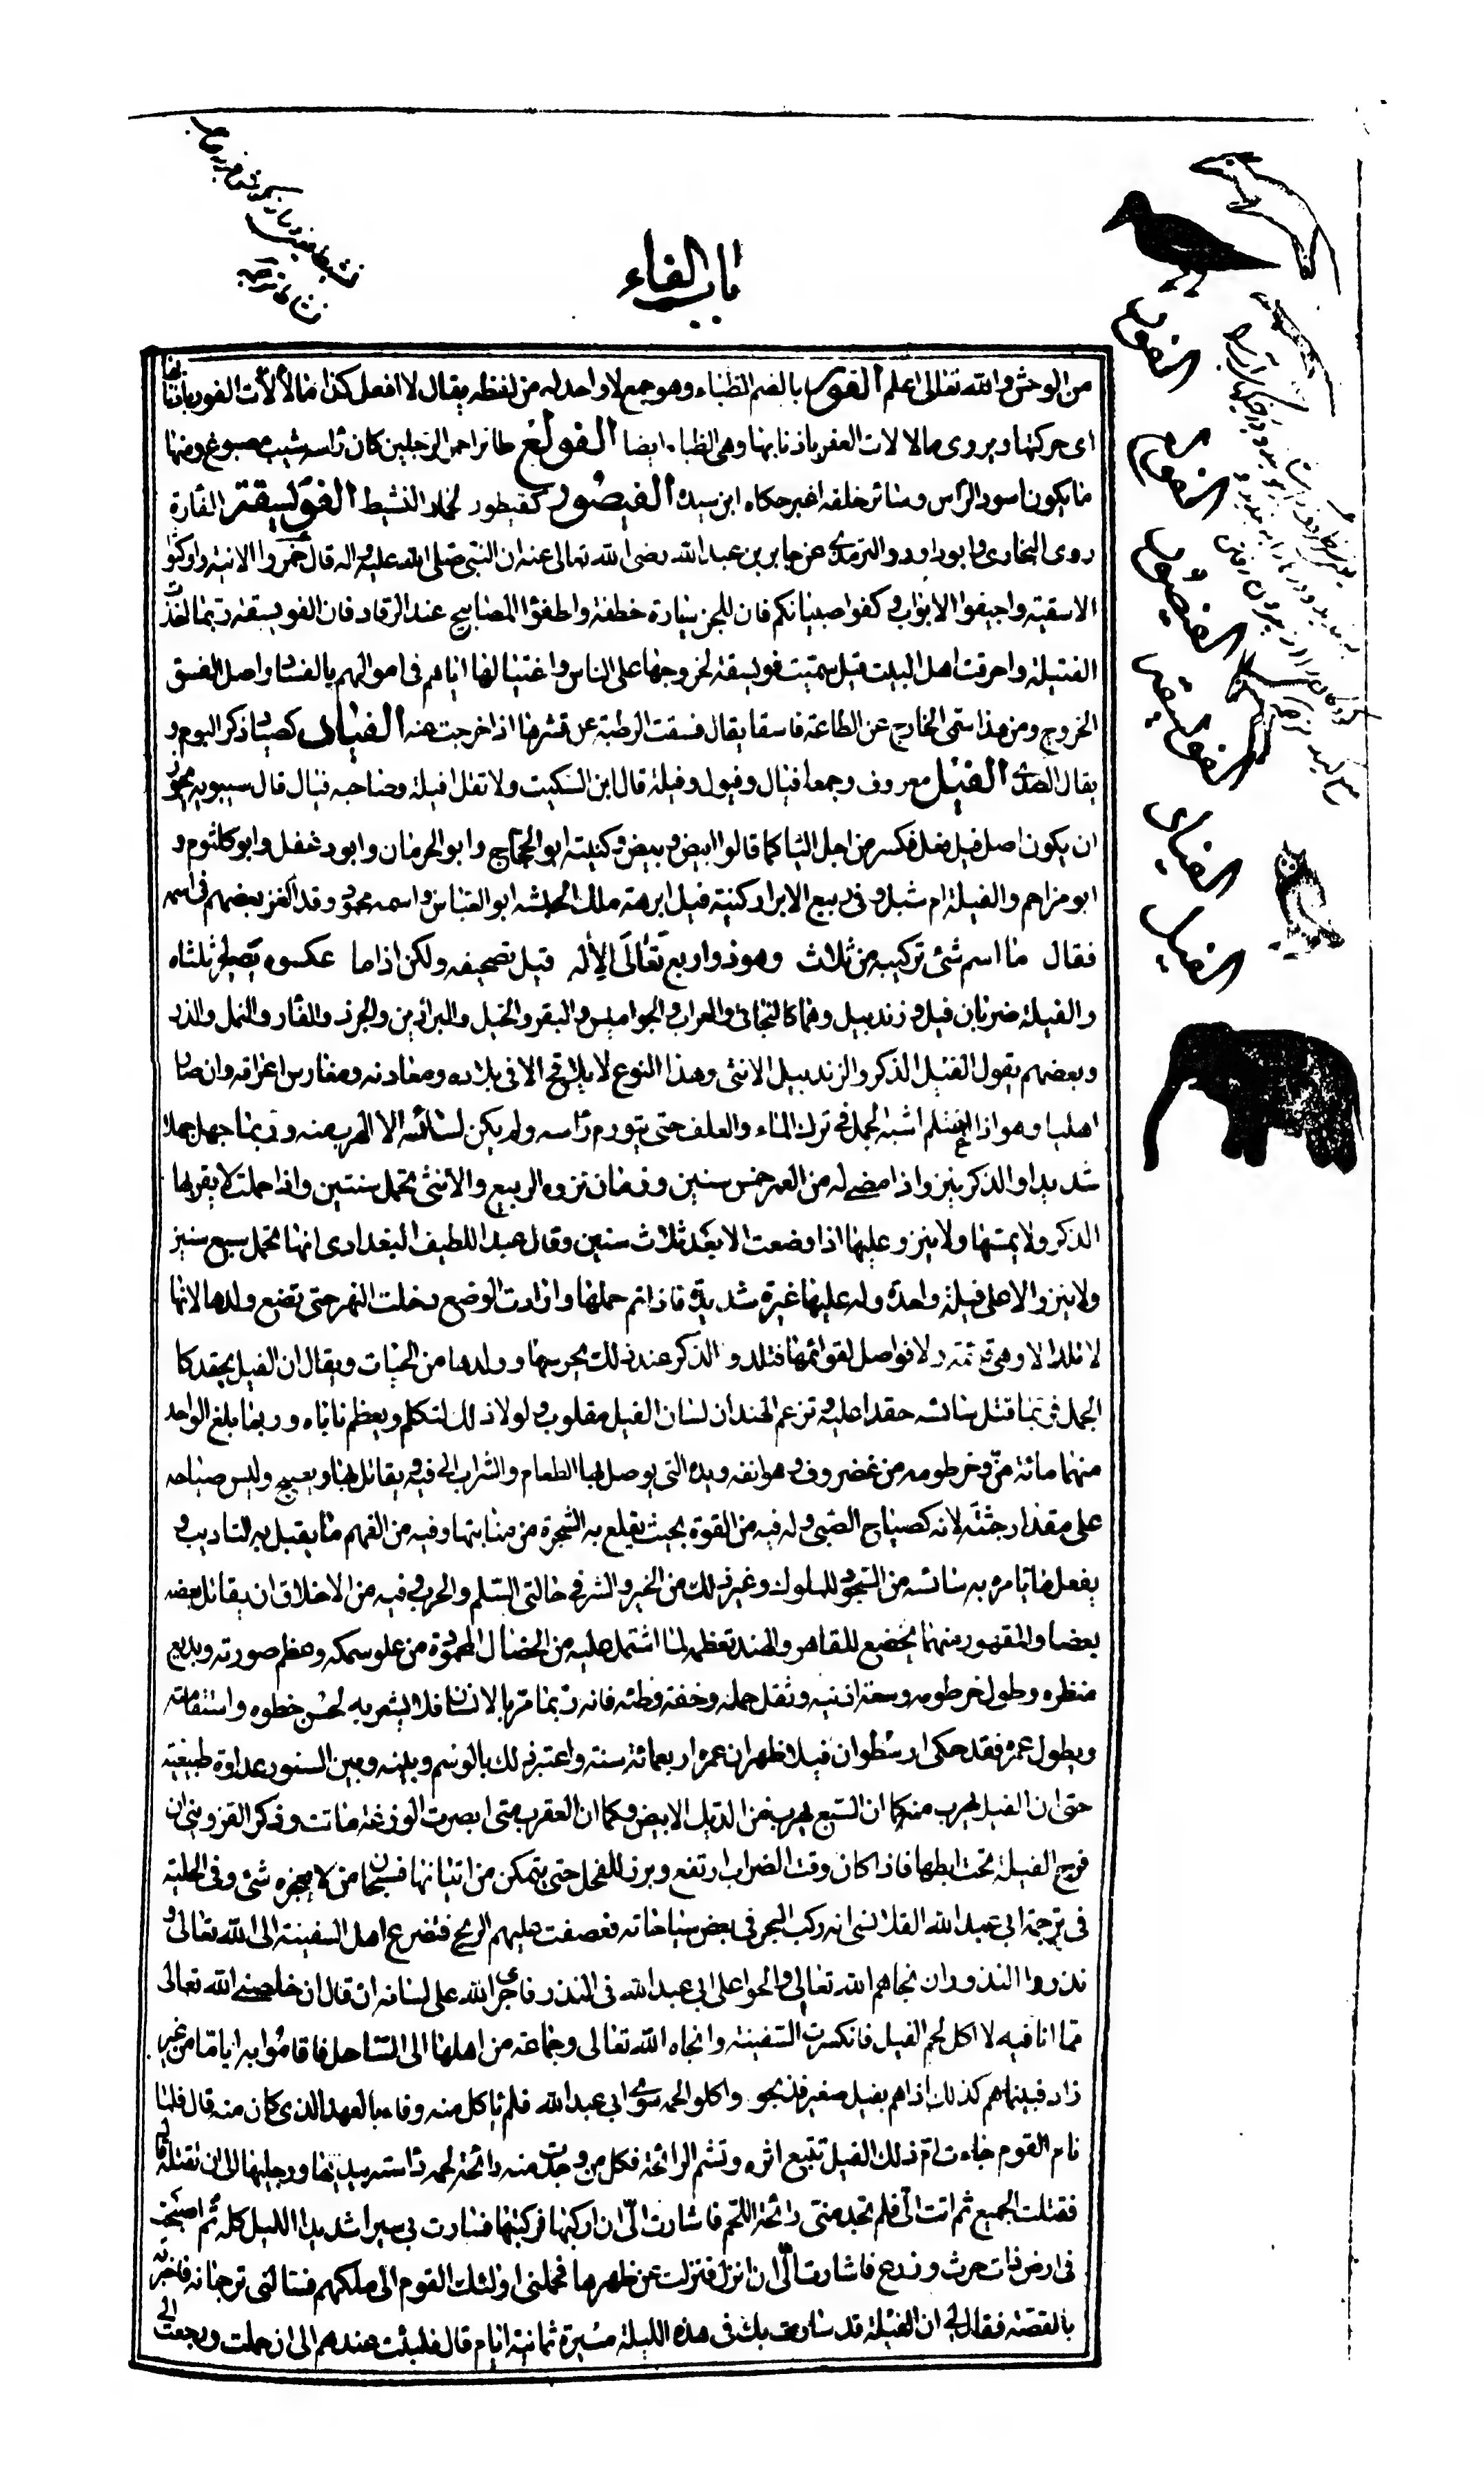 باب الفاء
من الوحش والله تعالى اعلم الفور بالضم الظباء وهو جمع لا واحد له من لفظه يقال لا افعل كذا ما لألأت الفور باذنابها
اى حركتها ويروى ما لالات العفر باذنابها وهى الظباء ايضا الفولع طائر احمر الرجلين كان راسه شيب مصبوغ ومنها
ما يكون اسود الراس وسائر خلقه اغبر حكاه ابن سيده الفيصور كقيطور لحمار النشيط الفويسقة الفارة
روى البخارى وابو داود والترمذى عن جابر بن عبد الله رضى الله تعالى عنه ان النبى صلى الله عليه واله قال خمروا الانية واوكئوا
الاسقية واجيفوا الابواب وكفوا صبيانكم فان للجن سيارة خطفة واطفئوا المصابيح عند الرقاد فان الفويسقة ربما اخذت
الفتيلة واحرقت اهل البيت قيل سميت فويسقة لخروجها على الناس واغتيالها اياهم فى اموالهم بالفساد واصل الفسق
الخروج ومن هذا سمى الخارج عن الطاعة فاسقا يقال فسقت الرطبة عن قشرها اذا خرجت عنه الفياد كصياد ذكر البوم و
يقال الصدى الفيل معروف وجمعه افيال وفيول وفيلة قال ابن السكيت ولا تقل افيلة وصاحبه فيال قال سيبويه يجوز
ان يكون اصل فيل فعل فكسر من اجل اليا كما قالوا ابيض وبيض وكنيته ابو الحجاج وابو الحرمان وابو دغفل وابو كلثوم و
ابو مزاحم والفيلة ام شبل وفى ربيع الابرار كنية فيل ابرهة ملك الحبشة ابو العباس واسمه محمود وقد الغز بعضهم فى اسمه
فقال ما اسم شئ تركيبه من ثلاث وهو ذو اربع تعالى الاله قيل تصحيفه ولكن اذا ما عكسوه يصير لى ثلثاه
والفيلة ضربان فيل وزندبيل وهما كالبخاتى والعراب والجواميس والبقر والخيل والبراذين والجرذ والفار والنمل والذر
وبعضهم يقول الفيل الذكر والزندبيل الانثى وهذا النوع لا يلاقح الا فى بلاده ومعادنه ومغارس اعراقه وان صار
اهليا وهو اذا اغتلم اشبه الجمل فى ترك الماء والعلف حتى يتورم راسه ولم يكن لسائسه الا الهرب منه وربما جهل جهلا
شديدا والذكر ينزو اذا مضى له من العمر خمس سنين وزمان نزوه الربيع والانثى تحمل سنتين واذا حملت لا يقربها
الذكر ولا يمسها ولا ينزو عليها اذا وضعت الا بعد ثلاث سنين وقال عبد اللطيف البغدادى انها تحمل سبع سنين
ولا ينزو الا على فيلة واحدة وله عليها غيرة شديدة فاذا تم حملها وارادت الوضع دخلت النهر حتى تضع ولدها لانها
لا تلد الا وهى قائمة ولا فواصل لقوائمها فتلد والذكر عند ذلك يحرسها وولدها من الحيات ويقال ان الفيل يحقد كا
لجمل فربما قتل سائسه حقدا عليه وتزعم الهند ان لسان الفيل مقلوب ولولا ذلك لتكلم ويعظم ناباه وربما بلغ الواحد
منهما مائة من وخرطومه من غضروف وهو انفه ويده التى يوصل بها الطعام والشراب الى فيه ويقاتل بها ويصيح وليس صياحه
على مقدار جثته لانه كصياح الصبى وله فيه من القوة بحيث يقلع به الشجرة من منابتها وفيه من الفهم ما يقبل به التاديب و
يفعل ما يامره به سائسه من السجود للملوك وغير ذلك من الخير والشر فى حالتى السلم والحرب وفيه من الاخلاق ان يقاتل بعضه
بعضا والمقهور منهما يخضع للقاهر والهند تعظمه لما اشتمل عليه من الخصال المحمودة من علو سمكه وعظم صورته وبديع
منظره وطول خرطومه وسعة اذنيه وثقل حمله وخفة وطئه فانه ربما مر بالانسان فلا يشعر به لحسن خطوه واستقامته
ويطول عمره فقد حكى ارسطو ان فيلا ظهر ان عمره اربعمائة سنة واعتبر ذلك بالوسم وبينه وبين السنور عداوة طبيعية
حتى ان الفيل يهرب منه كما ان السبع يهرب من الديك الابيض وكما ان العقرب متى ابصرت الوزغة ماتت وذكر القزوينى ان
فرج الفيلة تحت ابطها فاذا كان وقت الضراب ارتفع وبرز للفحل حتى يتمكن من اتيانها فسبحان من لا يعجزه شئ وفى الحلية
فى ترجمة ابى عبد الله القلانسى انه ركب البحر فى بعض سياحاته فعصفت عليهم الريح فتضرع اهل السفينة الى الله تعالى و
نذروا النذور ان نجاهم الله تعالى والحوا على ابى عبد الله فى النذر فاجرى الله على لسانه ان قال ان خلصنى الله تعالى
مما انا فيه لا اكل لحم الفيل فانكسرت السفينة وانجاه الله تعالى وجماعة من اهلها الى الساحل فاقاموا به اياما من غير
زاد فبينما هم كذلك اذا هم بفيل صغير فذبحوه واكلوا لحمه سوى ابى عبد الله فلم ياكل منه وفاء بالعهد الذى كان منه قال فلما
نام القوم جاءت ام ذلك الفيل تتبع اثره وتشم الرائحة فكل من وجدت منه رائحة لحمه داسته بيديها ورجليها الى ان تقتله قال
فقتلت الجميع ثم اتت الى فلم تجد منى رائحة اللحم فاشارت الى ان اركبها فركبتها فسارت بى سيرا شديدا الليل كله ثم اصبحت
فى ارض ذات حرث وزرع فاشارت الى ان انزل فنزلت عن ظهرها فحملنى اولئك القوم الى ملكهم فسالنى ترجمانه فاخبرته
بالقصة فقال لى ان الفيلة قد سارت بك فى هذه الليلة مسيرة ثمانية ايام قال فلبثت عندهم الى ان حملت ورجعت الى
الفور
الفولع
الفيصور
الفويسقة
الفياد
الفيل